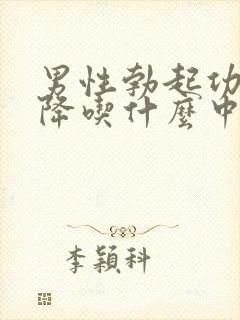 男性勃起功
降喫什麼中
李穎科